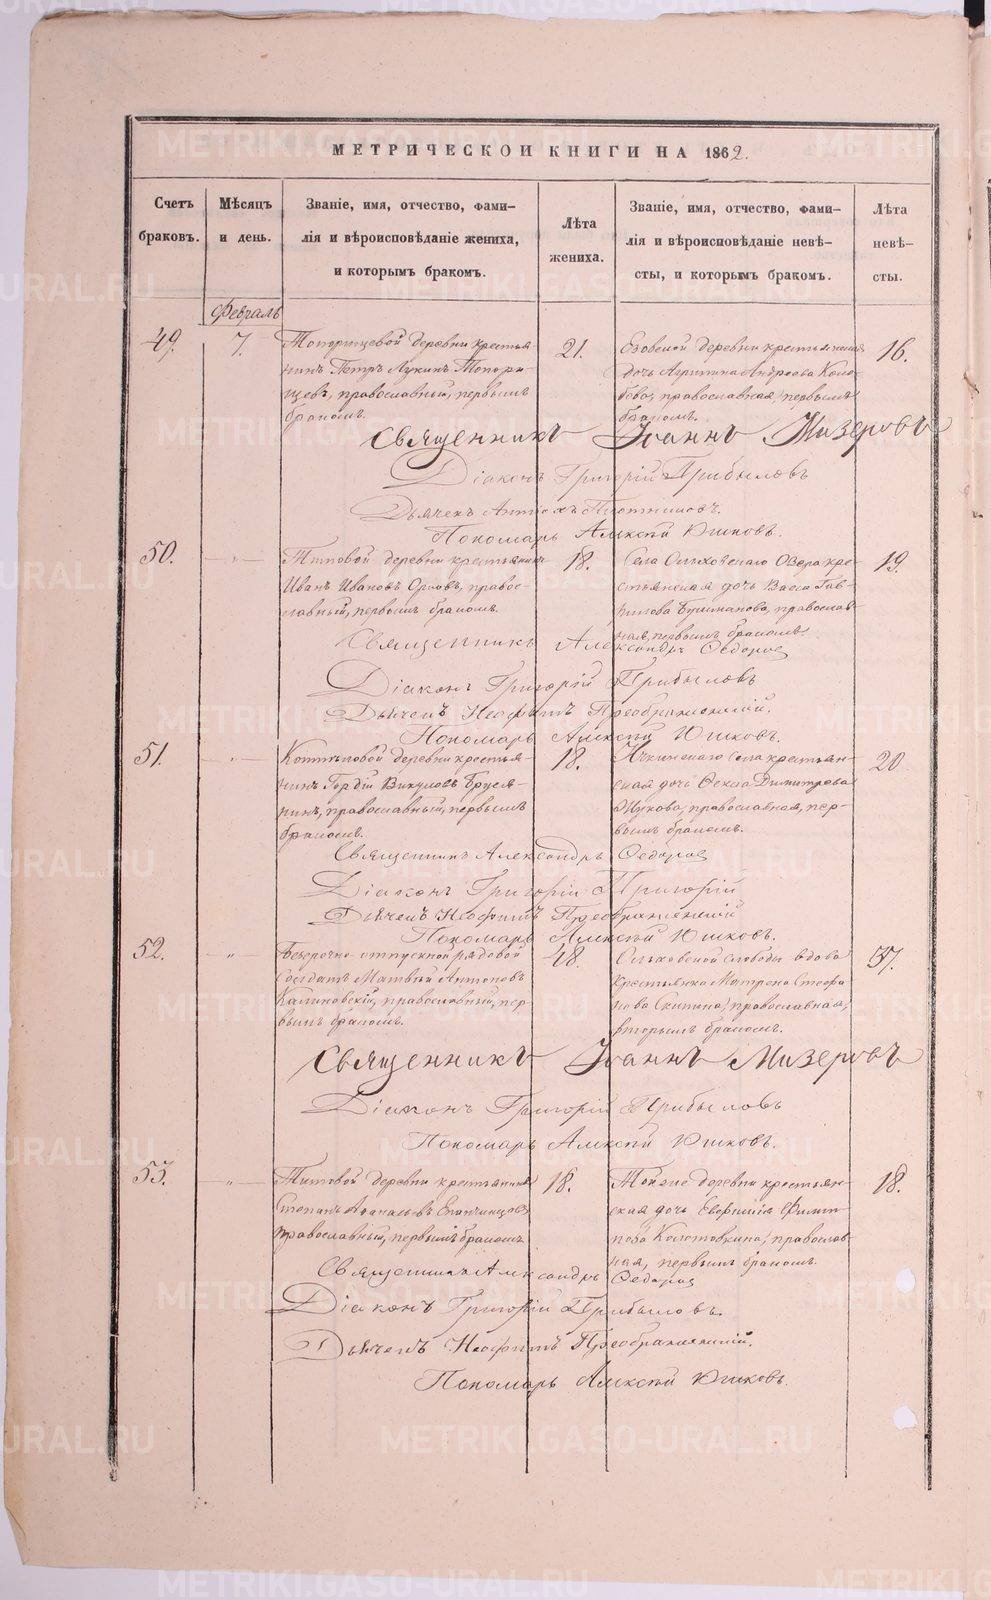 МЕТРИЧЕСКОЙ КНИГИ НА 1862.
Счетъ браковъ.
Мѣсяцъ и день.
Званіе, имя, отчество, фами-
лія и вѣроисповѣданіе жениха,
и которымъ бракомъ.
Лѣта жениха.
Званіе, имя, отчество, фами-
лія и вѣроисповѣданіе невѣ-
сты, и которымъ бракомъ.
Лѣта невѣ-
сты.
Февраль
49.
7.
Топорищевой деревни крестья-
нинъ Петръ Лукинъ Топори-
щевъ, православный, первымъ
бракомъ.
21.
Езовской деревни крестьянская
дочь Агрипина Андреева Коло-
бова, православная, первымъ
бракомъ.
16.
Священникъ Іоаннъ Мизеровъ
Діаконъ Григорій Прибыловъ
Дьячекъ Плотниковъ.
Пономарь Алексѣй Юшковъ.
50.
"
Титовой деревни крестьянинъ
Иванъ Ивановъ правос-
лавный, первымъ бракомъ.
18.
Села Ольховскаго Озера кре-
стьянская дочь Васса Гав-
рилова православ-
ная, первымъ бракомъ.
19.
Священникъ Александръ Ѳедоровъ
Діаконъ Григорій Прибыловъ
Дьячекъ Неофитъ Преображенскій.
Пономарь Алексѣй Юшковъ.
51.
"
деревни крестья-
нинъ Гордій Викуловъ Бруся-
нинъ, православный, первымъ
бракомъ.
18.
Ичкинскаго села крестьян-
ская дочь Ѳекла Димитріева
Жукова, православная, пер-
вымъ бракомъ.
20
Священникъ Александръ Ѳедоровъ
Діаконъ Григорій Григорій
Дьячекъ Неофитъ Преображенскій
Пономарь Алексѣй Юшковъ.
52.
"
Безсрочно-отпускной рядовой
Солдатъ Матвѣй Антоновъ
Калиновскій, православный, пер-
вымъ бракомъ.
48.
слободы вдова
Крестьянка Матрена Стефа
нова Скипина, православная,
вторымъ бракомъ.
37.
Священникъ Іоаннъ Мизеровъ
Діаконъ Григорій Прибыловъ
Пономарь Алексѣй Юшковъ.
53.
"
Титовой деревни крестьянинъ
Степанъ Епанчинцовъ
православный, первымъ бракомъ
18.
Тойже деревни крестьян-
ская дочь Евфимія Филип
пова Колотовкина, православ-
ная, первымъ бракомъ.
18.
Священникъ Александръ Ѳедоровъ
Діаконъ Григорій Прибыловъ.
Дьячекъ Неофитъ Преображенскій.
Пономарь Алексѣй Юшковъ.
METRIKI.GASO-URAL.RU